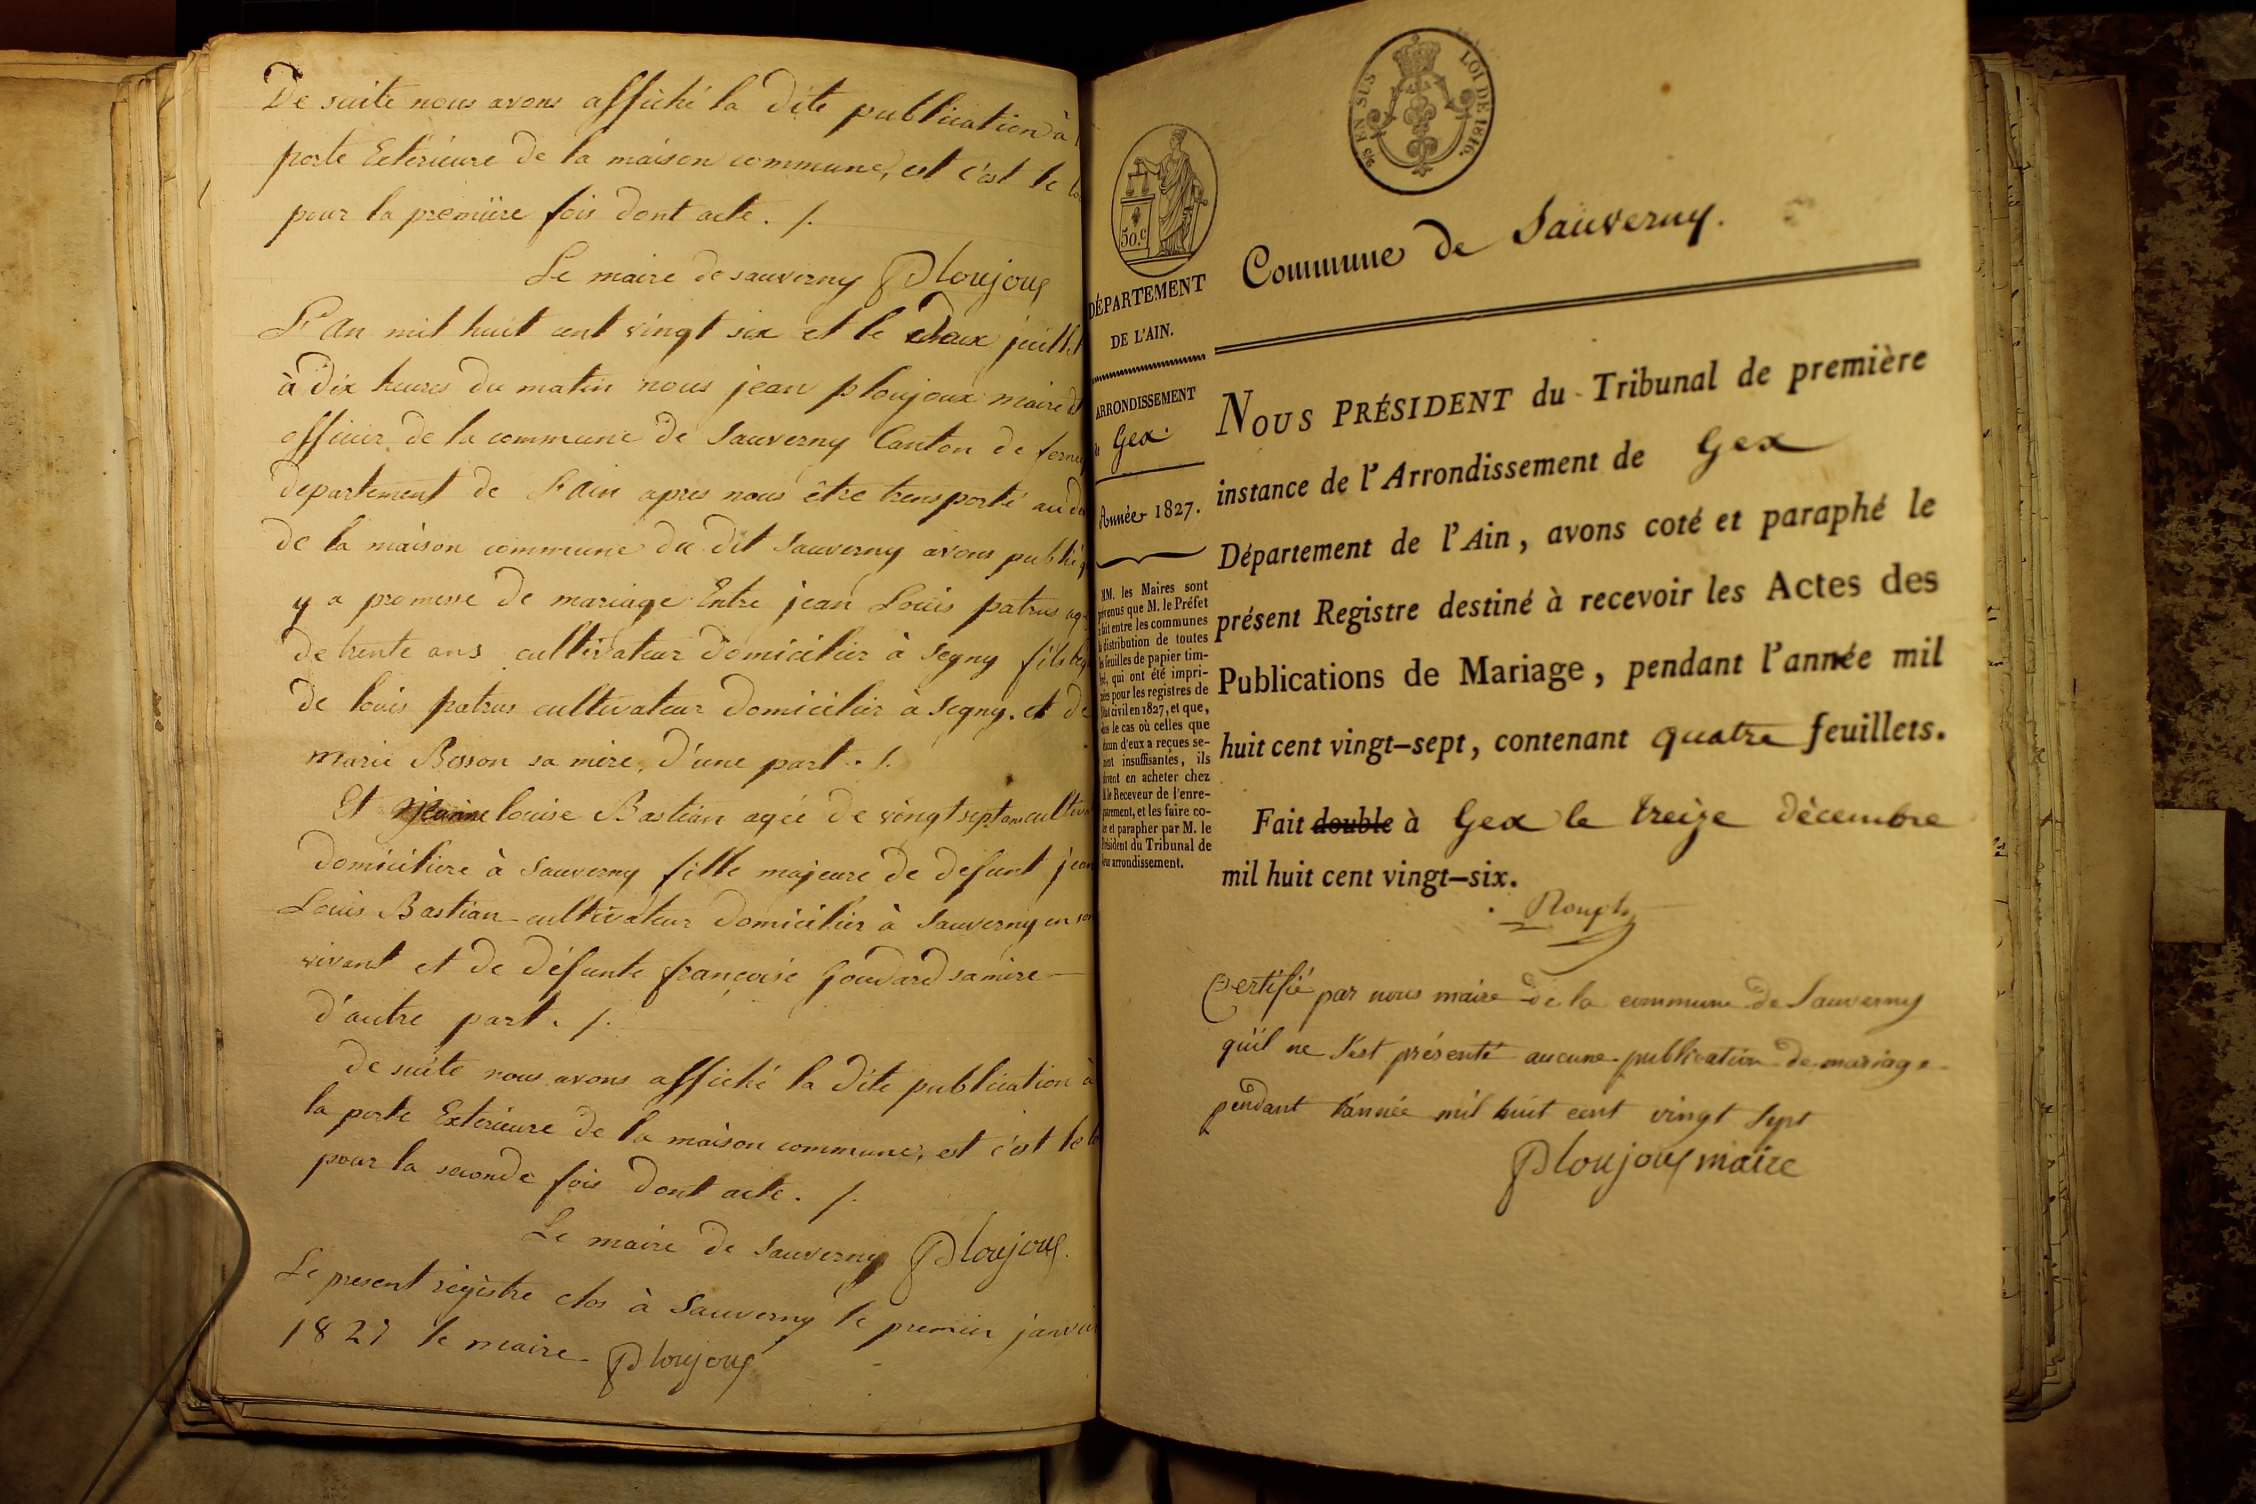 De suite nous avons affiché la dite publication à
porte Exterieure de la maison commune, est c'est le
pour la première fois dont acte. /.
Le maire de sauverny Ploujoux
L'an mil huit cent vingt six et le deux juillet
à dix heures du matin nous jean ploujoux maire
officier de la commune de Sauverny Canton de
departement de L'ain apres nous être transporté au
de la maison commune du dit Sauverny avons
y a promesse de mariage Entre jean Louis patrus
de trente ans cultivateur domicilier à Segny fils
de louis patrus cultivateur domicilier à Segny. et de
marie Bosson sa mère, d'une part. /.
Et jeanne louise Bastian agée de vingt sept ans
domiciliere à Sauverny fille majeure de defunt jean
Louis Bastian cultivateur domicilier à Sauverny en son
vivant et de défunte françoise Goudard sa mère
d'autre part. /.
De suite nous avons affiché la dite publication à
la porte Exterieure de la maison commune, est c'est le
pour la seconde fois dont acte. /.
Le maire de Sauverny Ploujoux.
Le present régistre clos à Sauverny le premier
1827 le maire Ploujoux
EN SUS
LOI DE 1816.
50.c
DÉPARTEMENT
DE L'AIN.
ARRONDISSEMENT
de Gex.
Année 1827.
MM. les Maires sont
prévenus que M. le Préfet
fait entre les communes
la distribution de toutes
les feuilles de papier tim-
bré, qui ont été impri-
mées pour les registres de
l'état civil en 1827, et que,
dans le cas où celles que
chacun d'eux a reçues se-
raient insuffisantes, ils
doivent en acheter chez
M. le Receveur de l'enre-
gistrement, et les faire co-
ter et parapher par M. le
Président du Tribunal de
leur arrondissement.
Commune de Sauverny.
NOUS PRÉSIDENT du Tribunal de première
instance de l'Arrondissement de Gex
Département de l'Ain, avons coté et paraphé le
présent Registre destiné à recevoir les Actes des
Publications de Mariage, pendant l'année mil
huit cent vingt-sept, contenant quatre feuillets.
Fait double à Gex le treize décembre
mil huit cent vingt-six.
Certifié par nous maire de la commune de Sauverny
qu'il ne s'est présenté aucune publication de mariage
pendant l'année mil huit cent vingt sept
Ploujoux maire